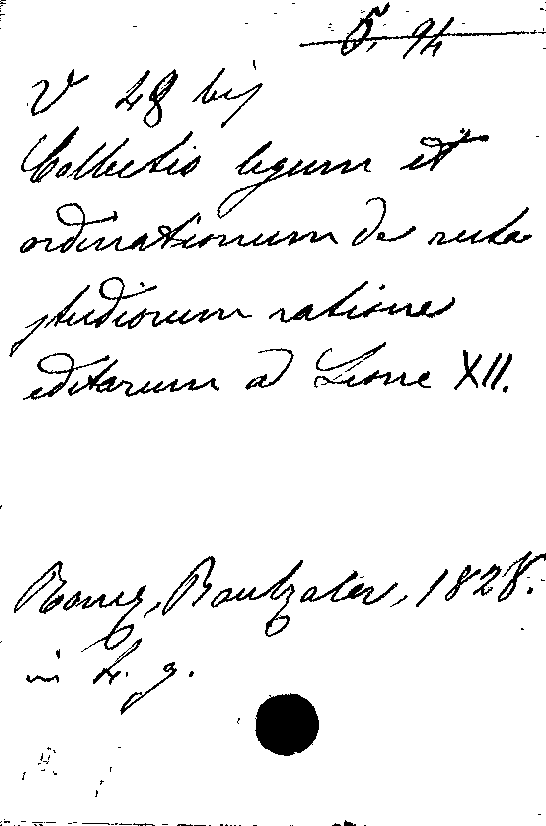 5, 94
V 48 bis
Collectio legum et
ordinationum de recta
studiorum ratione
editarum a Leone XII.
1828.
in 4. g.